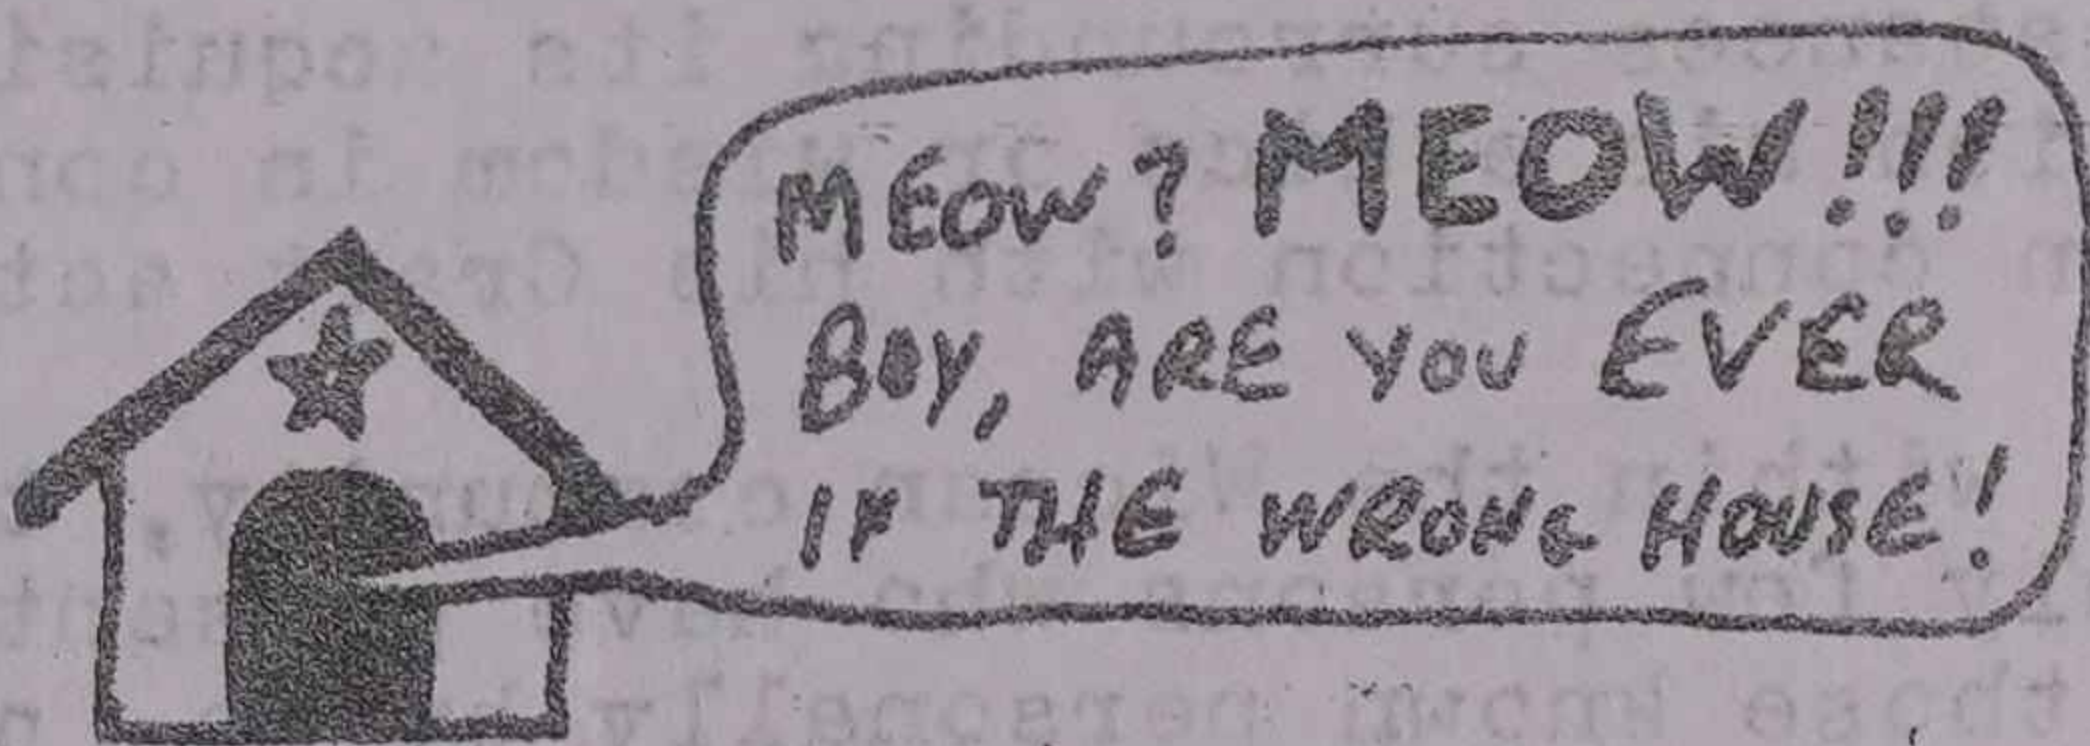 MEOW? MEOW!!!
BOY, ARE YOU EVER
IN THE WRONG HOUSE!